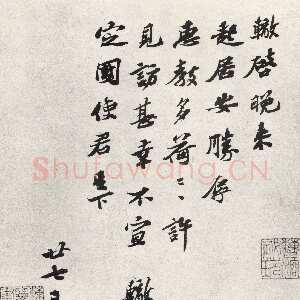 轍啓晚来
起居安勝存
惠教多荷ミ許
見訪甚幸不宣 轍
定國使君𠂢下
廿七日
Shufawang.CN